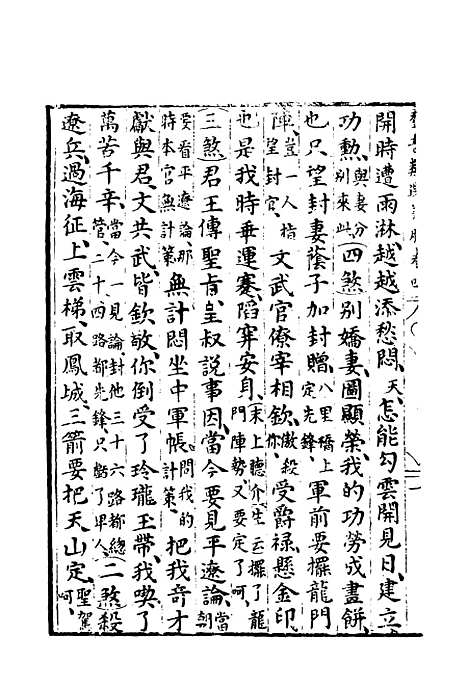 開時遭雨淋、越越添愁悶、天、怎能勾雲開見日、建立
功勲、與妻分別來此、四煞別嬌妻圖顯榮、我的功勞成畫餅、
也只望封妻蔭子加封贈、八里橋上定先鋒、軍前要擺龍門
陣、豈一人指望封官、文武官僚宰相欽、傲殺你、受爵祿懸金印、
也是我時乖運蹇、蹈穽安身、末上聽介生云擺了龍門陣勢又要定了呵、
三煞君王傳聖旨、皇叔說事因、當今要見平遼論、當朝
要看平遼論、那時本官無計策、無計悶坐中軍帳、問我的計策、把我奇才
獻與君、文共武、皆欽敬、你倒受了玲瓏玉帶、我喫了
萬苦千辛、當今一見論封他三十六路都總管、二十四路都先鋒、只虧了卑人、二煞殺
遼兵、過海征、上雲梯、取鳳城、三箭要把天山定、聖駕呵、